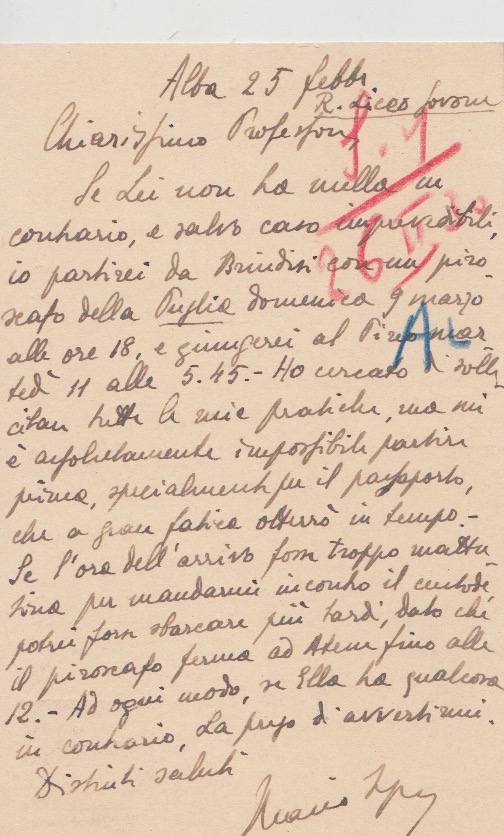 Alba 25 febbr
R. Liceo Govone
Chiarissimo Professore,
Se Lei non ha nulla in
contrario, e salvo caso imprevedibili,
io partirei da Brindisi con un piro
scafo della Puglia domenica 9 marzo
alle ore 18, e giungerei al Pireo mar
tedì 11 alle 5.45.- Ho cercato di solle
citare tutte le mie pratiche, ma mi
è assolutamente impossibile partire
prima, specialmente per il passaporto,
che a gran fatica otterrò in tempo.-
Se l'ora dell'arrivo fosse troppo mattu
tina per mandarmi incontro il custode,
potrei forse sbarcare più tardi, dato che
il piroscafo ferma ad Atene fino alle
12.- Ad ogni modo, se Ella ha qualcosa
in contrario, La prego d'avvertirmi.
Distinti saluti
Mario
AL